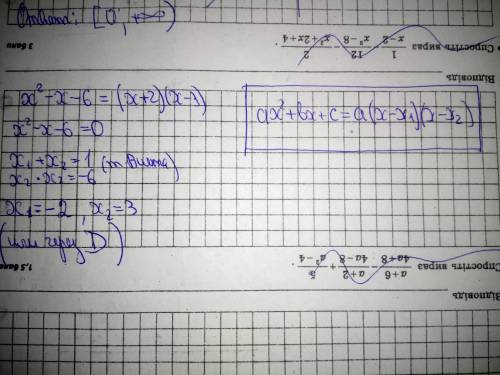 Ответ: [0; +∞)
3 бали
Спростіть вираз 1/(x-2) - 12/(x³-8) - 2/(x²+2x+4).
Відповідь
x²-x-6 = (x+2)(x-3)
x²-x-6=0
x₁+x₂=1 (т Виета)
x₂·x₂=-6
x₁=-2, x₂=3
(или через D)
ax²+bx+c=a(x-x₁)(x-x₂)
1,5 бали
Спростіть вираз (a+6)/(4a+8) - (a+2)/(4a-8) + 5/(a²-4).
Відповідь